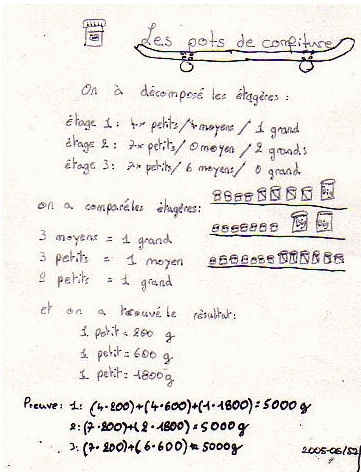 Les pots de confiture
On à décomposé les étagères :
étage 1 : 4x petits / 4 moyens / 1 grand
étage 2 : 7x petits / 0 moyen / 2 grands
étage 3 : 7x petits / 6 moyens / 0 grand
on a comparé les étagères :
3 moyens = 1 grand
3 petits = 1 moyen
9 petits = 1 grand
et on a trouvé le résultat :
1 petit = 200 g
1 petit = 600 g
1 petit = 1800 g
Preuve : 1 : (4·200)+(4·600)+(1·1800) = 5000 g
2 : (7·200)+(2·1800) = 5000 g
3 : (7·200)+(6·600) = 5000g